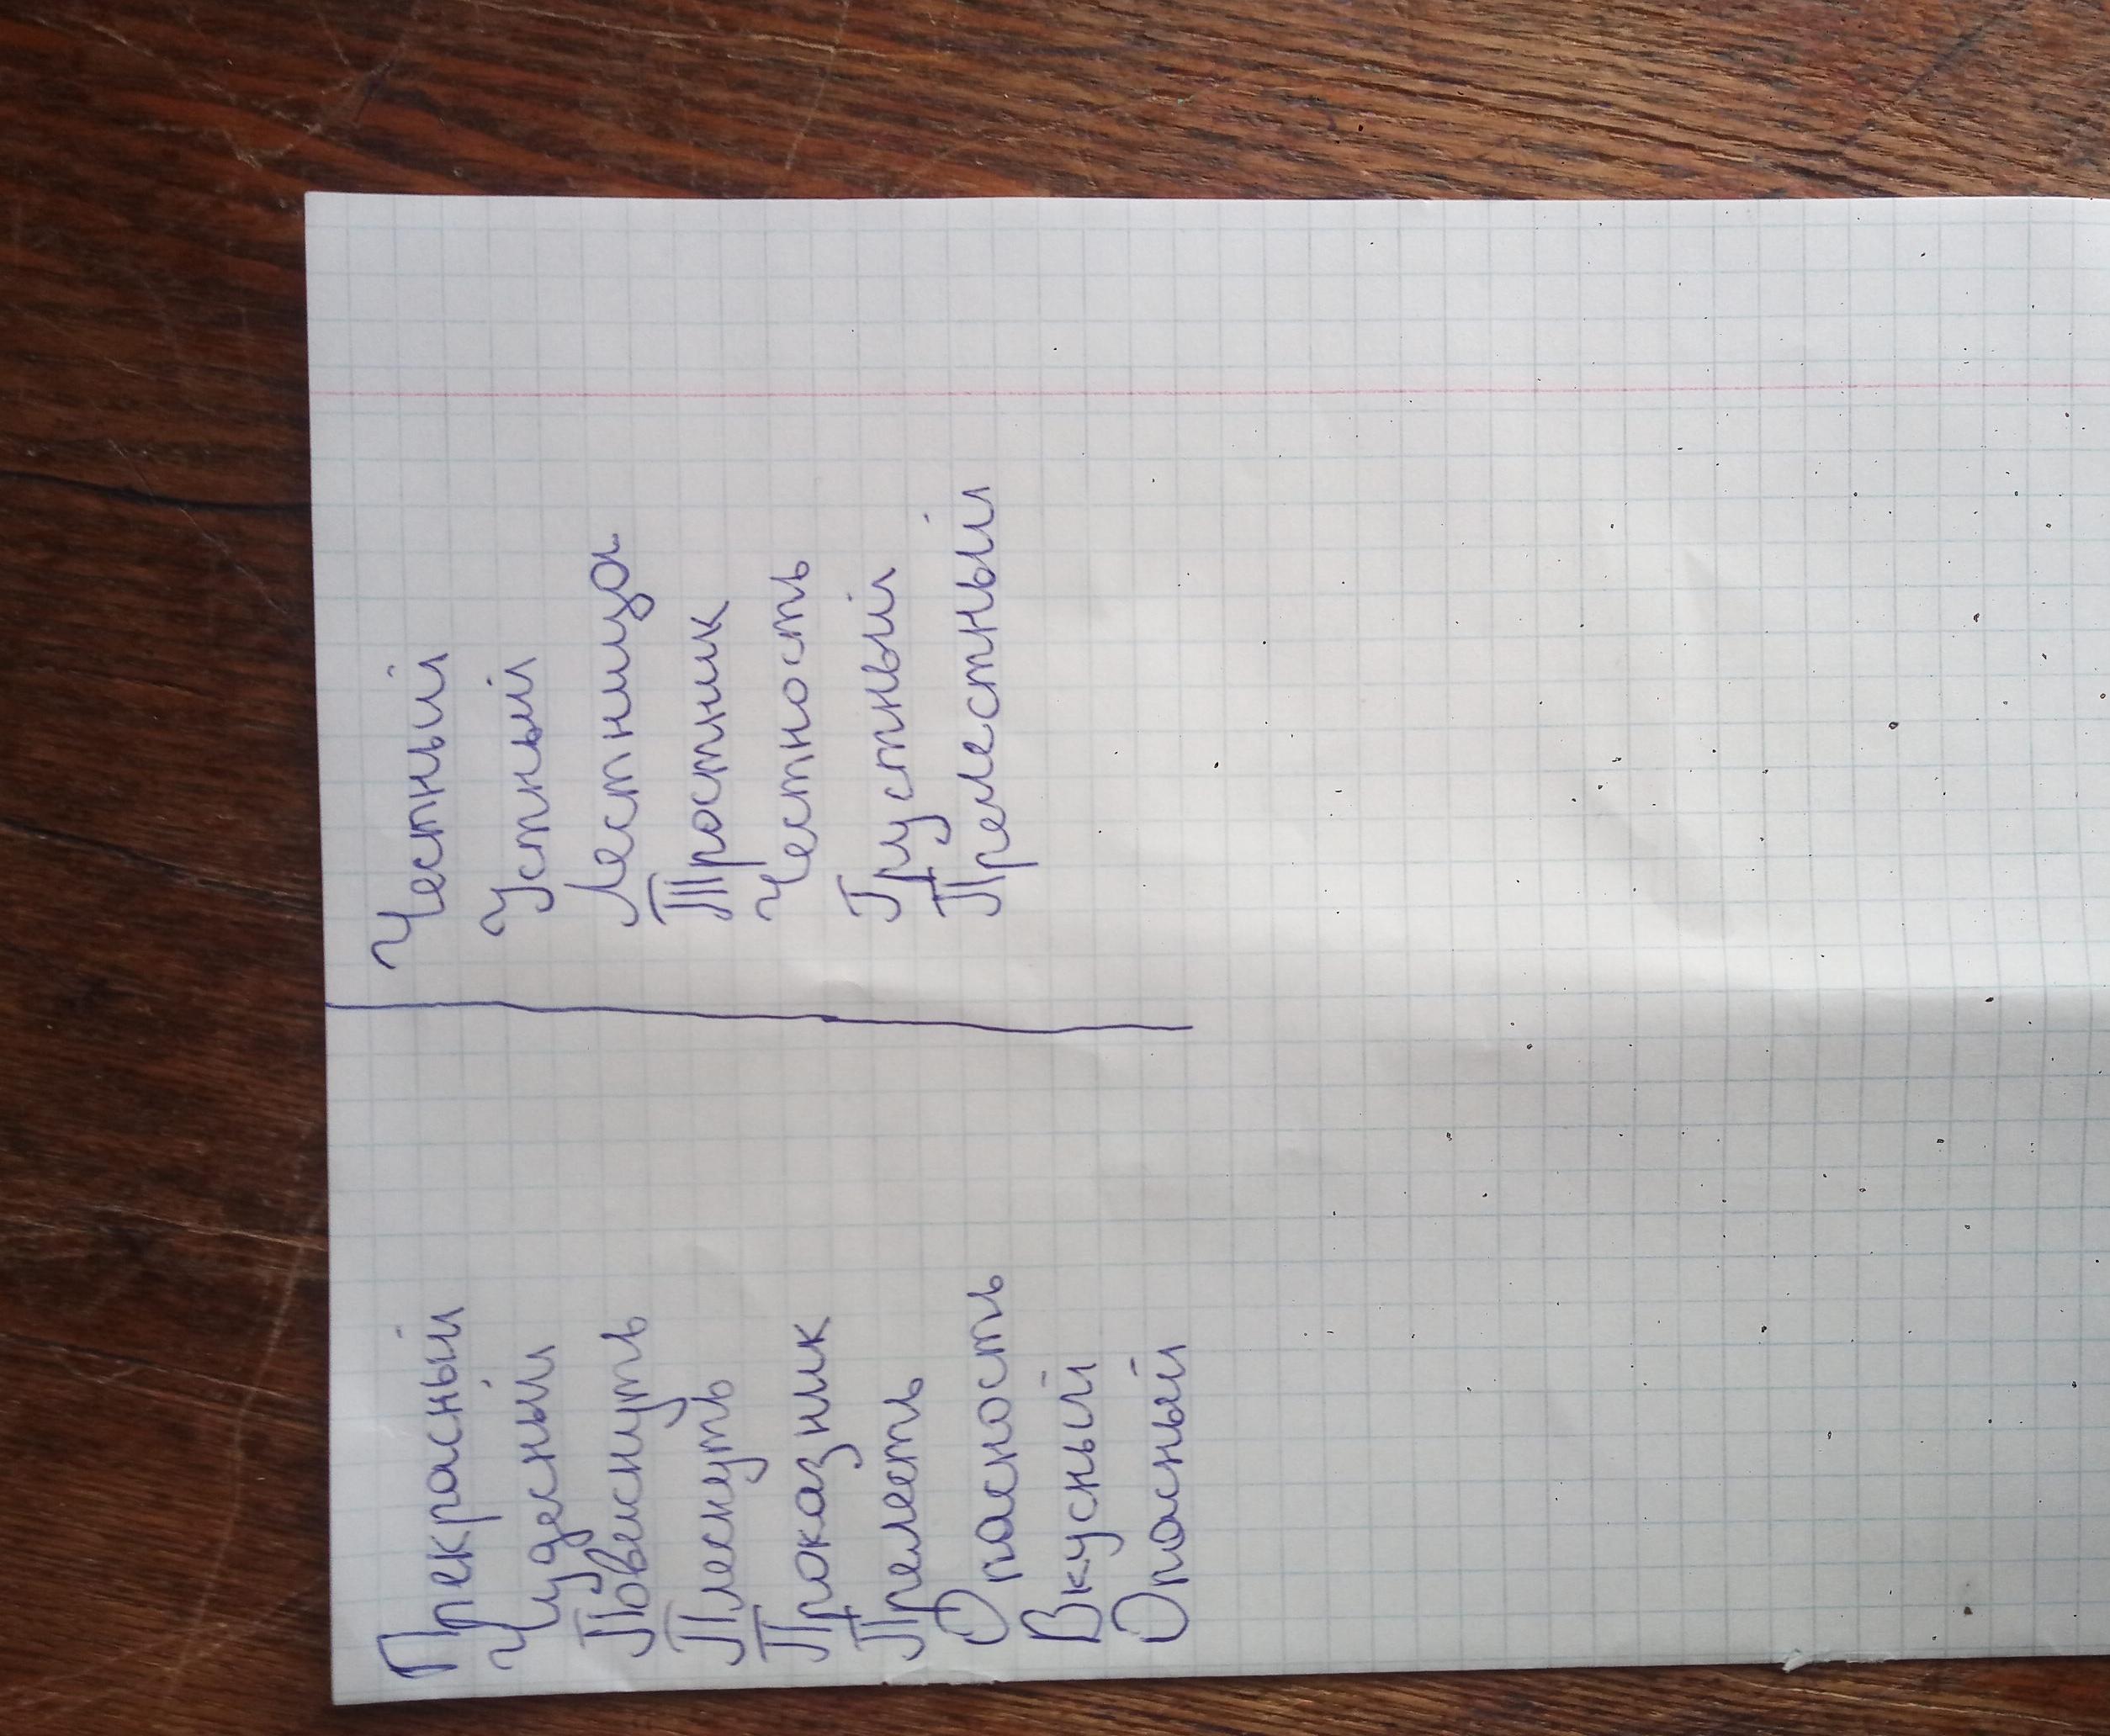 Прекрасный
Чудесный
Повиснуть
Плеснуть
Проказник
Прелесть
Опасность
Вкусный
Опасный
Честный
Устный
Лестница
Тростник
Честность
Грустный
Прелестный